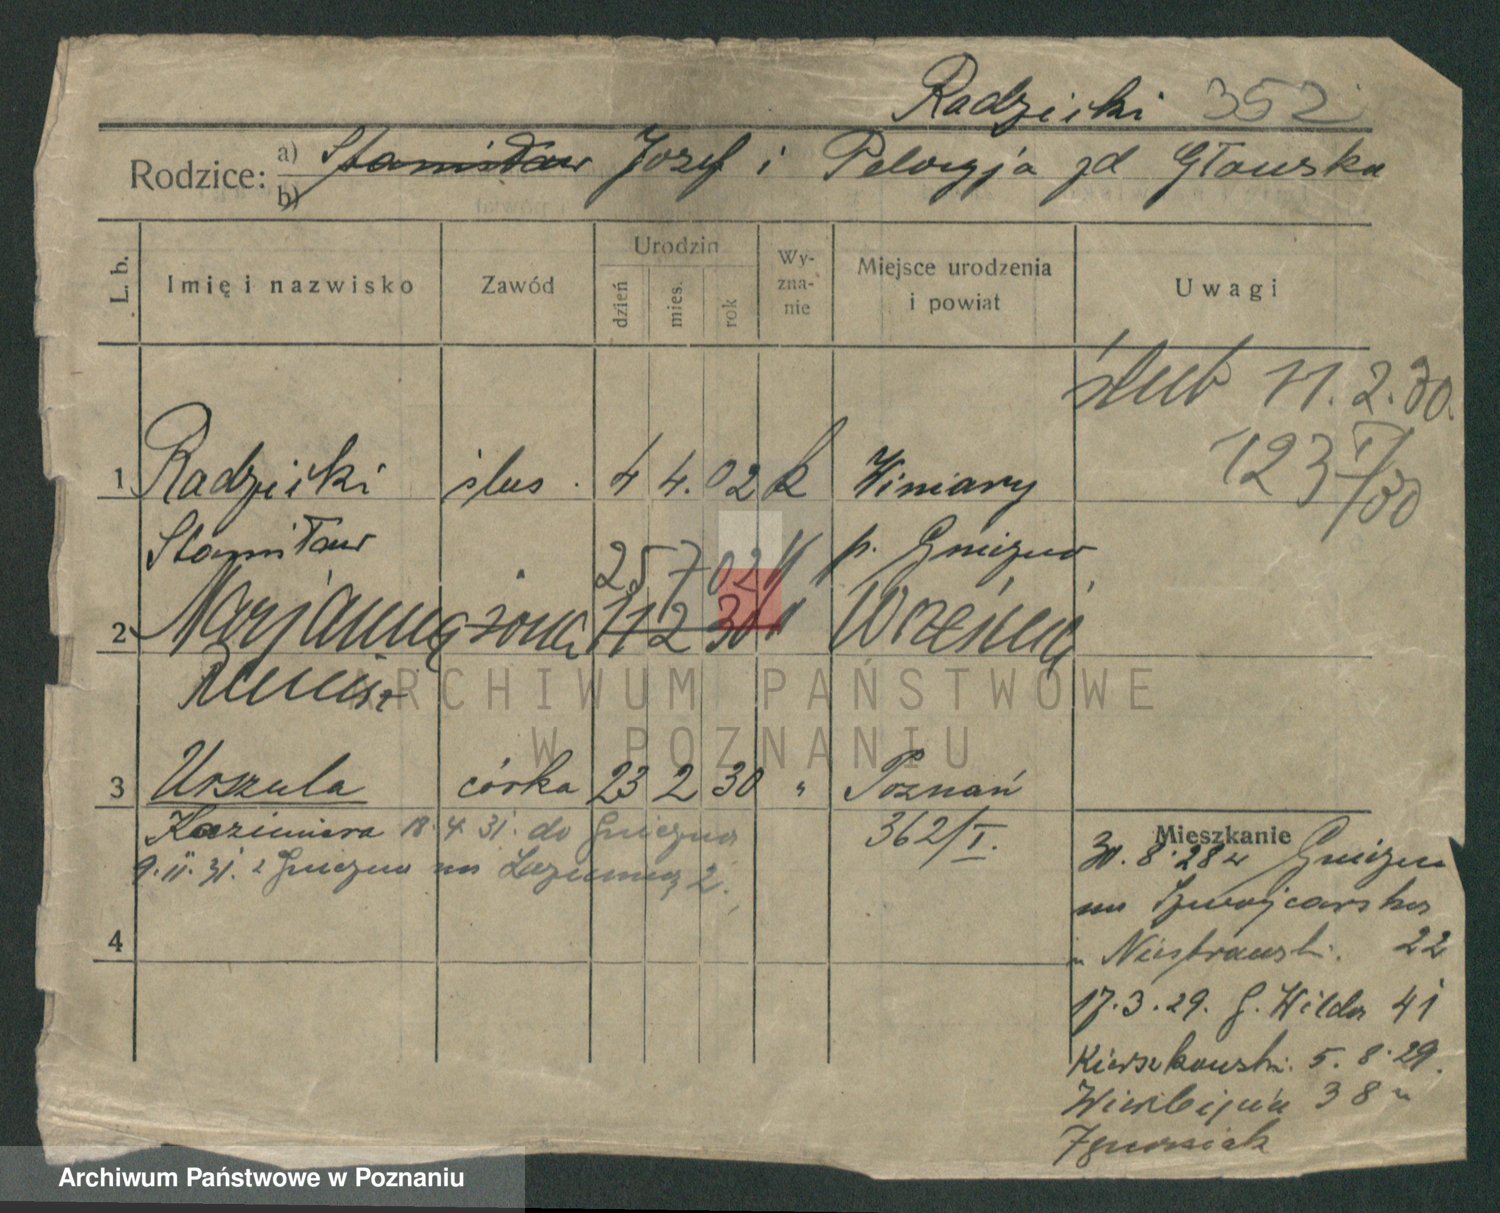 Radzicki 352
Rodzice: a) Stanisław Józef i Pelagja zd Głowska
b)
L. b. Imię i nazwisko Zawód Urodzin dzień mies. rok Wy-zna-nie Miejsce urodzenia i powiat Uwagi
ślub 11.2.30.
123 I/30
1 Radzicki ślus. 4 4. 02 k Winiary
Stanisław p. Gniezno
25 7 02 k
2 Marjanna żona 11 2 30 Września
3 Urszula córka 23 2 30 " Poznań
Kazimiera 18. 4. 31. do Gniezna 362/I.
9. II. 31. z Gniezna na Łazienną 2.
4
Mieszkanie
30. 8. 28 z Gniezna
na Szwajcarska
22
17. 3. 29. G. Wilda 41
5. 8. 29.
Wierzbięcic 38 u
ARCHIWUM PAŃSTWOWE
W POZNANIU
Archiwum Państwowe w Poznaniu